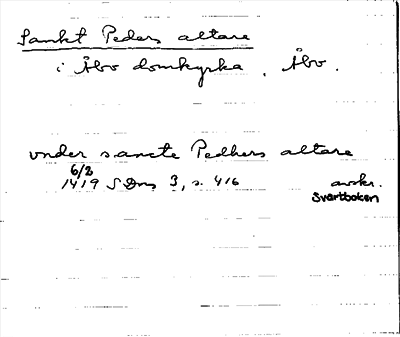 Sankt Peders altare
i Åbo domkyrka, Åbo.
vnder sancte Pedhers altare
6/2
1419 SDns 3, s. 416 avskr.
Svartboken